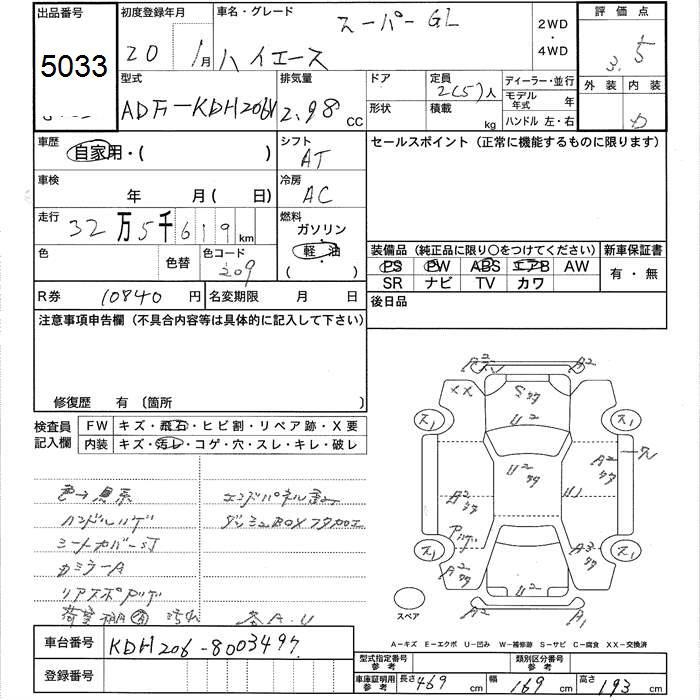 出品番号 初度登録年月 車名・グレード 評価点
5033 20 1月 ハイエース スーパーGL 2WD・4WD 3.5
外装 内装
型式 排気量 ドア 定員 ディーラー・並行
2(5)人 モデル年式 年
ADF-KDH206V 2.98 CC 形状 積載 kg ハンドル 左・右
車歴 シフト セールスポイント (正常に機能するものに限ります)
自家用・( ) AT
車検 冷房
年 月( 日) AC
走行 燃料
32万5千619km ガソリン・軽油
( )
色 色替 色コード 209
装備品 (純正品に限り○をつけてください) 新車保証書
PS PW ABS エアB AW 有・無
SR ナビ TV カワ
R券 10840 円 名変期限 月 日 後日品
注意事項申告欄 (不具合内容等は具体的に記入して下さい)
修復歴 有 (箇所 )
検査員記入欄 FW キズ・飛石・ヒビ割・リペア跡・X要
内装 キズ・汚レ・コゲ・穴・スレ・キレ・破レ
色→黒系 エンドパネル歪
ハンドルハゲ ダッシュBOXフタカケ
シートカバーS1
カミラーA
リアスポハゲ
荷室棚(有) 汚れ
A2 A2
XX S
U2
ス1 ス1
U2
A2 U1 A2
ハゲ A3
ス1 ス1
A2 U2
A2 A1
スペア
A-キズ E-エクボ U-凹み W-補修跡 S-サビ C-腐食 XX-交換済
車台番号 KDH206-8003497
登録番号
型式指定番号参考 類別区分番号参考
車庫証明用参考 長さ 469 cm 幅 169 cm 高さ 193 cm